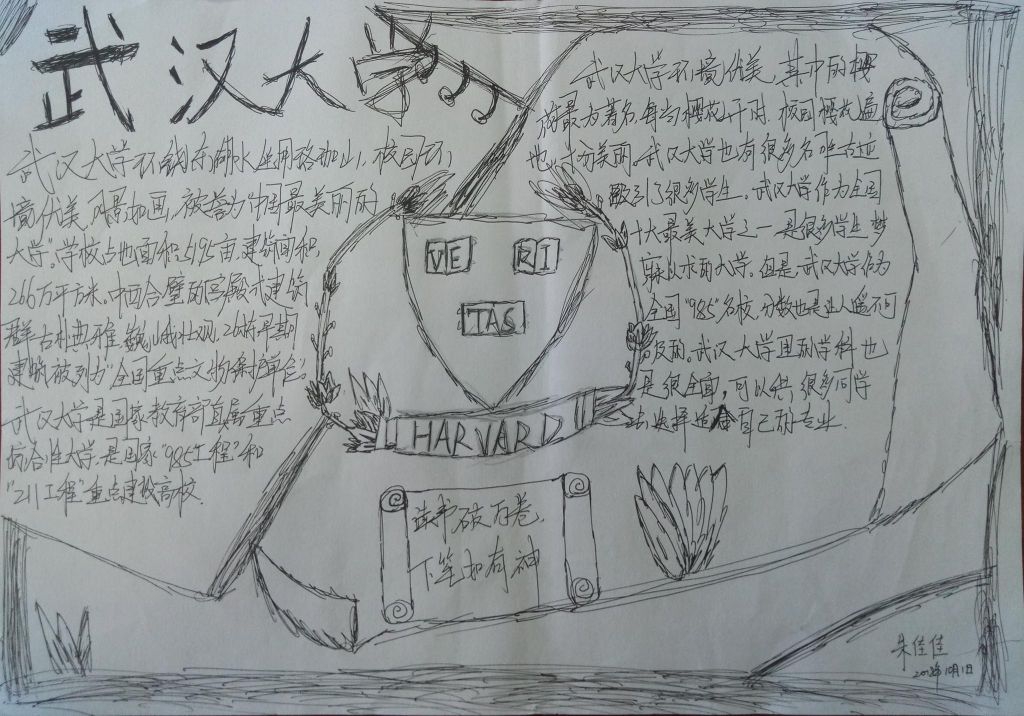 武汉大学
武汉大学环绕东湖水坐拥珞珈山,校园环
境优美,风景如画,被誉为"中国最美丽的
大学"。学校占地面积5195亩,建筑面积
266万平方米。中西合璧的宫殿式建筑
群古朴典雅,巍峨壮观,26栋早期
建筑被列为"全国重点文物保护单位"。
武汉大学是国家教育部直属重点
综合性大学,是国家"985工程"和
"211工程"重点建设高校.
武汉大学环境优美,其中的樱
花最为著名,每当樱花开时,校园樱花遍
地,十分美丽.武汉大学也有很多名胜古迹
吸引了很多学生.武汉大学作为全国
十大最美大学之一是很多学生梦
寐以求的大学.但是武汉大学作为
全国"985"名校,分数也是让人遥不可
及的.武汉大学里的学科也
是很全面,可以供很多同学
去选择适合自己的专业.
VE RI
TAS
HARVARD
读书破万卷,
下笔如有神
朱佳佳
10月1日